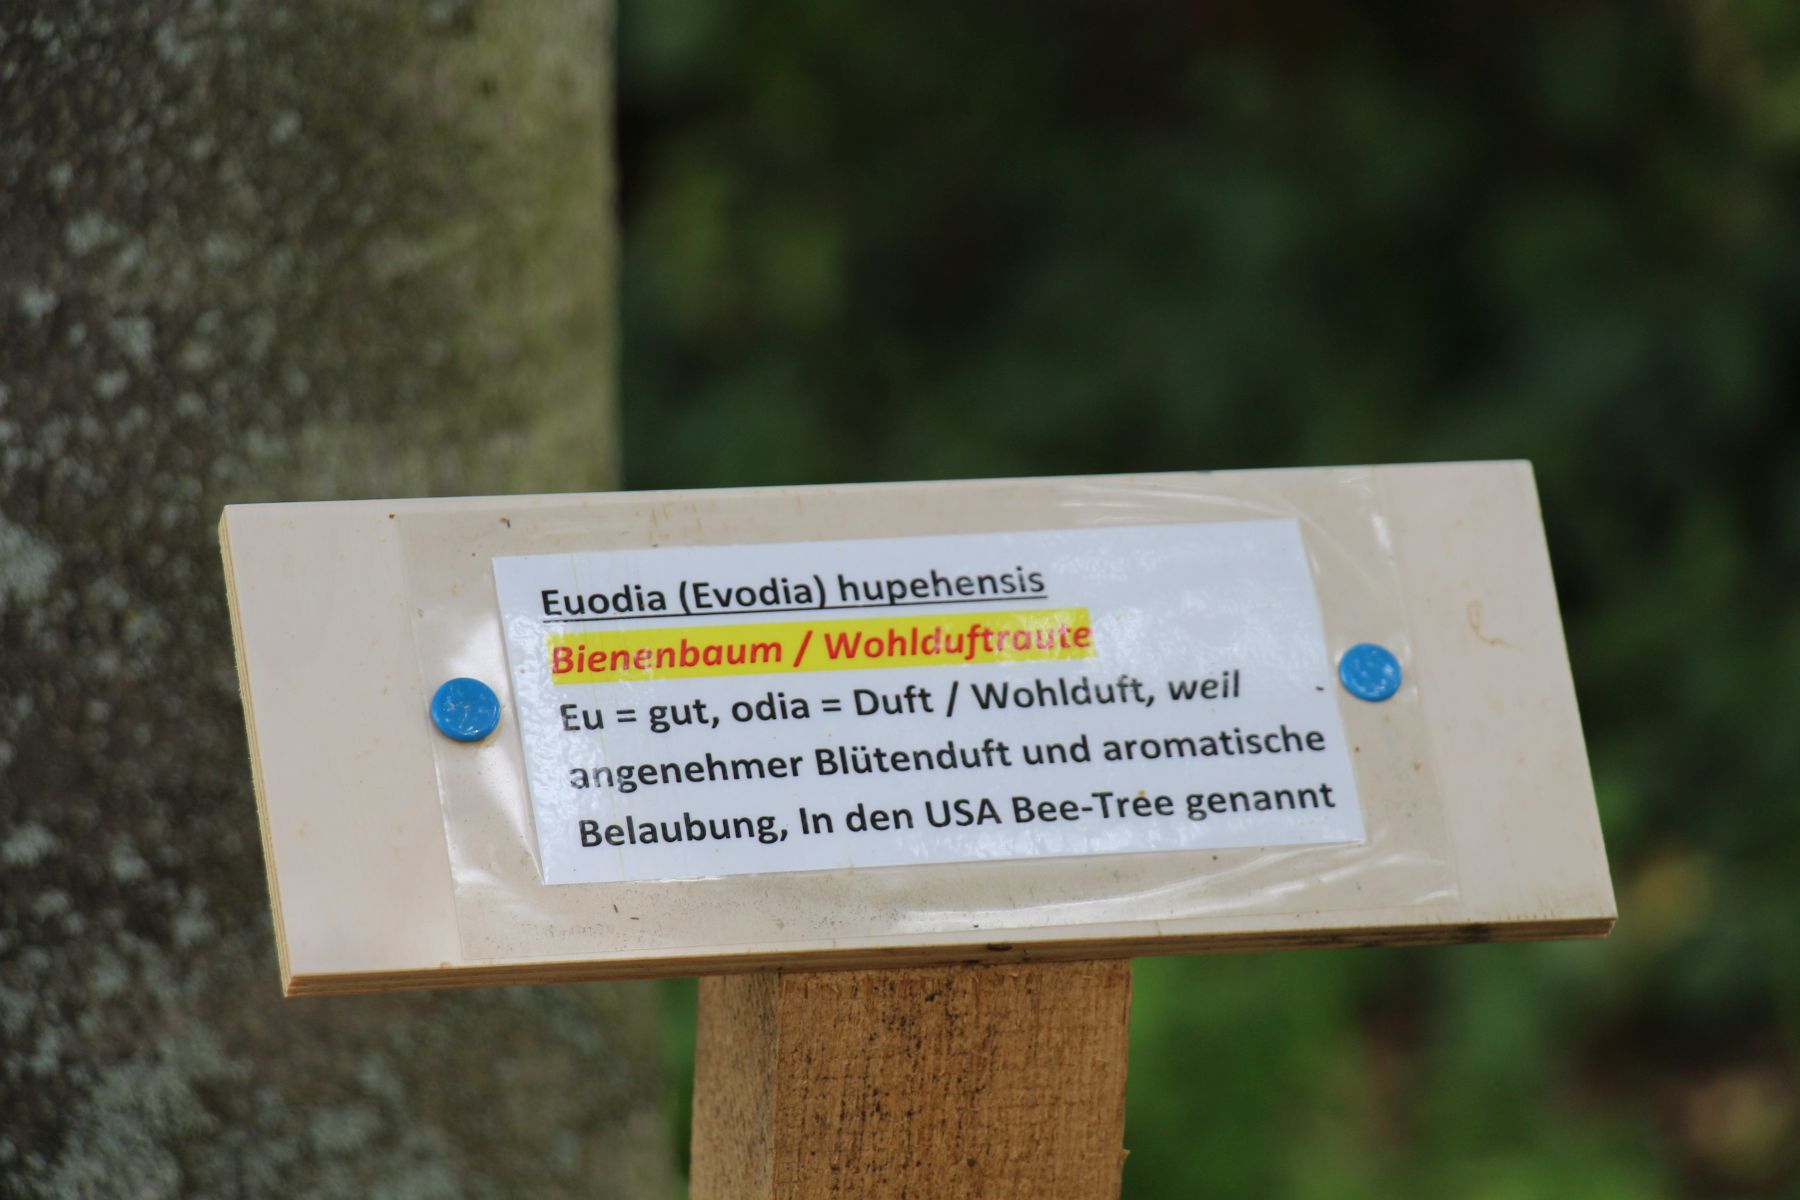 Euodia (Evodia) hupehensis
Bienenbaum / Wohlduftraute
Eu = gut, odia = Duft / Wohlduft, weil
angenehmer Blütenduft und aromatische
Belaubung, In den USA Bee-Tree genannt